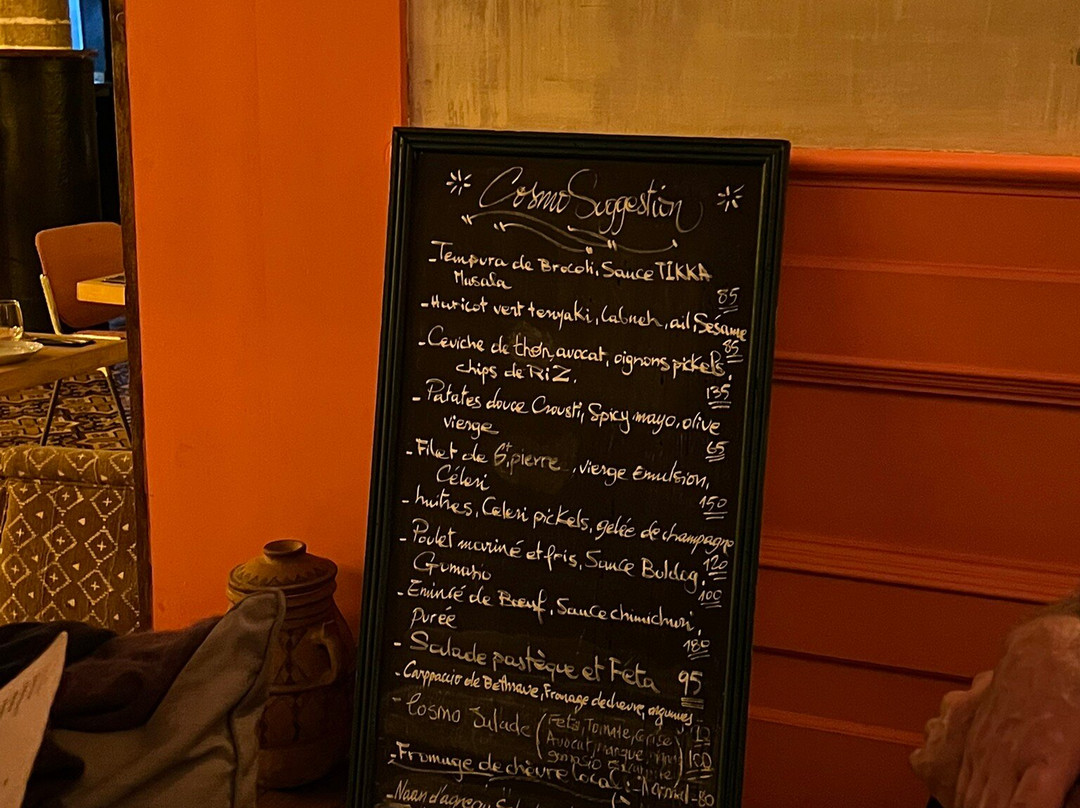 Cosmo Suggestion
- Tempura de Brocoli, Sauce TIKKA
Musala
85
- Haricot vert teryaki, labneh, ail, Sésame
85
- Ceviche de thon, avocat, oignons pickels,
chips de RiZ.
135
- Patates douce Crousti, Spicy mayo, olive
vierge
65
- Filet de St pierre, vierge Emulsion,
Céleri
150
- huitres, Celeri pickels, gelée de champagne
120
- Poulet mariné et fris, Sauce Buldog,
Gumasio
100
- Emincé de Bœuf, Sauce chimichuri,
Purée
180
- Salade pastèque et Féta 95
- Carppacio de Betterave, Fromage de chevre, agrumes -
- Cosmo Salade (Feta, Tomate, Cerise
Avocat, mangue,
gumasio
100
- Fromage de chèvre local : - Normal - 80
- Naan d'agneau